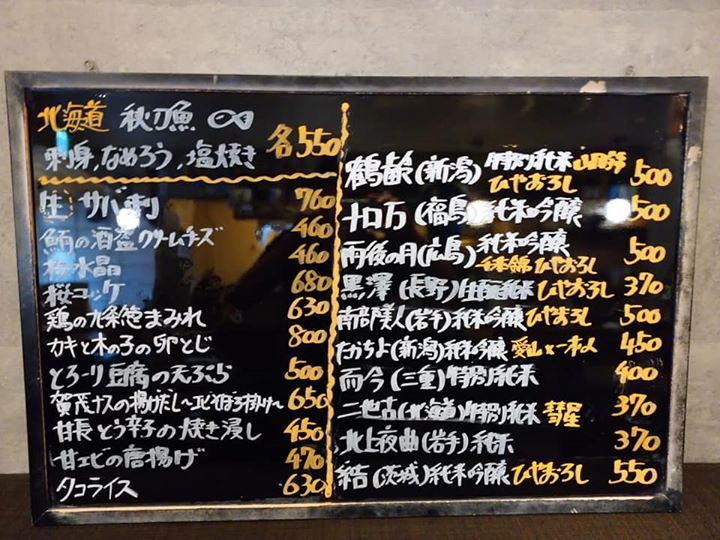 北海道 秋刀魚
刺身,なめろう,塩焼き 各550
生サバ刺 760
の酒盗クリームチーズ 460
梅水晶 460
桜コッケ 680
鶏の九条葱まみれ 630
カキと木の子の卵とじ 800
とろーり豆腐の天ぷら 500
賀茂ナスの揚げだし〜エビそぼろ掛け〜 650
甘長とう辛子の焼き浸し 450
甘エビの唐揚げ 470
タコライス 630
鶴齢(新潟)特別純米 ひやおろし 500
十ロ万(福島)純米吟醸 500
雨後の月(広島)純米吟醸 千本錦 ひやおろし 500
黒澤(長野)生酛純米 ひやおろし 370
南部美人(岩手)純米吟醸 ひやおろし 500
たかちよ(新潟)純米吟醸 愛山×一本〆 450
而今(三重)特別純米 400
二世古(北海道)特別純米 彗星 370
北上夜曲(岩手)純米 370
結(茨城)純米吟醸 ひやおろし 550